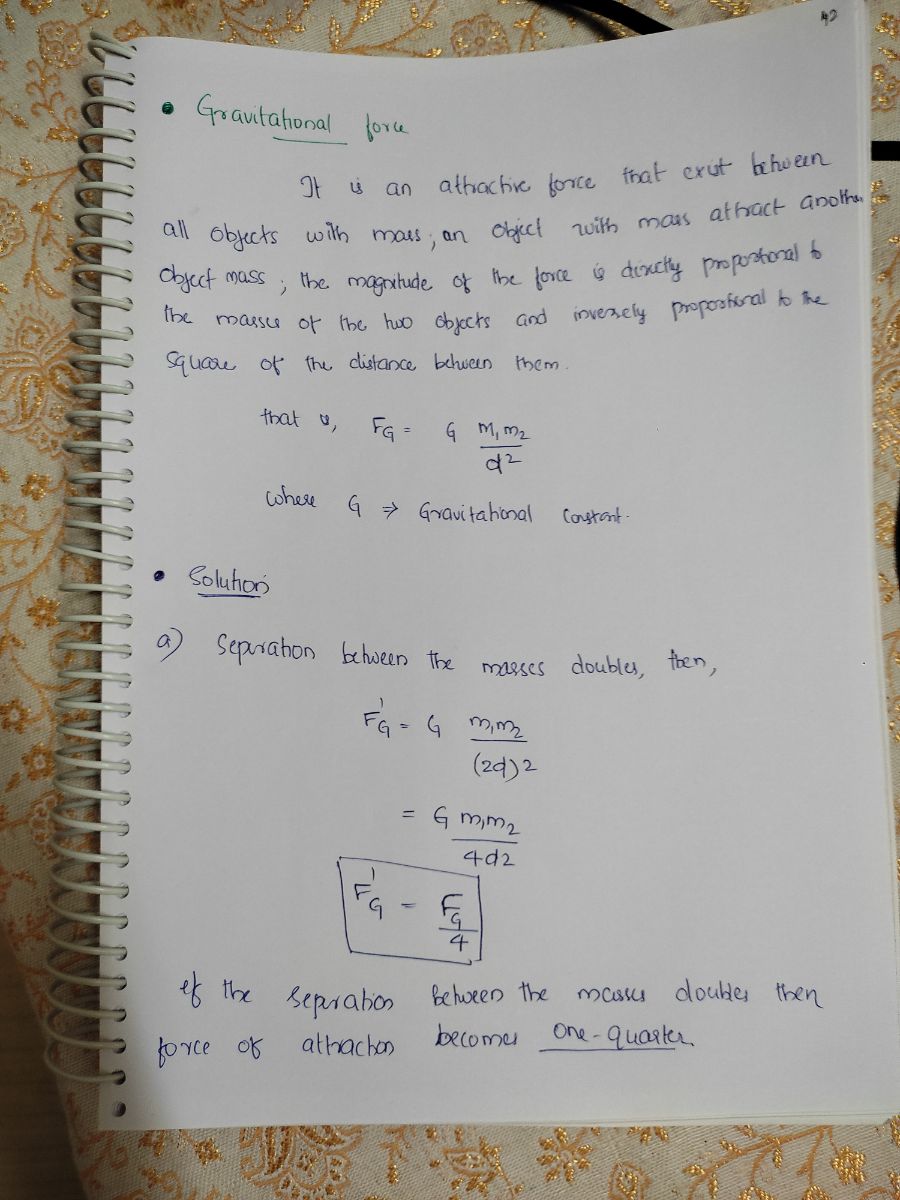 42
• Gravitational force
It is an attractive force that exist between
all objects with mass; an object with mass attract another
object mass; the magnitude of the force is directly proportional to
the masses of the two objects and inversely proportional to the
square of the distance between them.
that is, FG = G m₁m₂/d²
where G ⇒ Gravitational constant.
• Solution
a) Separation between the masses doubles, then,
F'G = G m₁m₂/(2d)²
= G m₁m₂/4d²
F'G = FG/4
if the separation between the masses doubles then
force of attraction becomes one-quarter